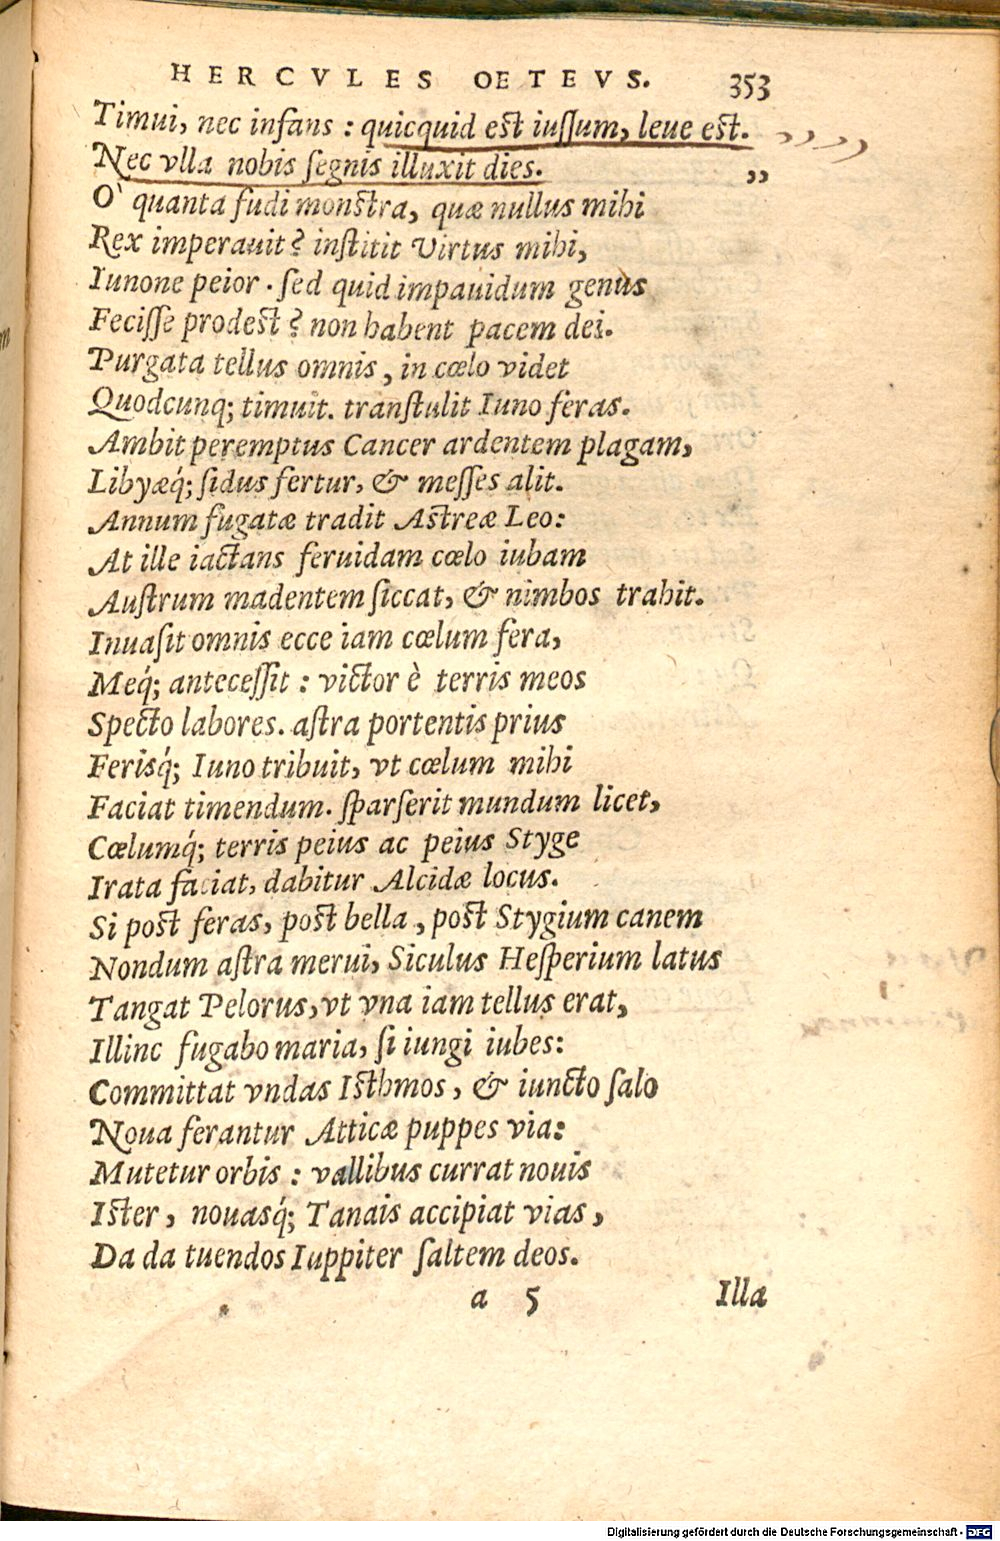 HERCVLES OETEVS. 353
Timui, nec infans : quicquid est iuſſum, leue est. ,,,,
Nec vlla nobis ſegnis illuxit dies. ,,
O` quanta fudi monstra, quæ nullus mihi
Rex imperauit? inſtitit Virtus mihi,
Iunone peior. ſed quid impauidum genus
Feciſſe prodest? non habent pacem dei.
Purgata tellus omnis, in cœlo videt
Quodcunq; timuit. tranſtulit Iuno feras.
Ambit peremptus Cancer ardentem plagam,
Libyæq́; ſidus fertur, & meſſes alit.
Annum fugatæ tradit Astreæ Leo:
At ille iactans feruidam cœlo iubam
Auſtrum madentem ſiccat, & nimbos trahit.
Inuaſit omnis ecce iam cœlum fera,
Meq́; anteceſſit : victor è terris meos
Specto labores. aſtra portentis prius
Ferisq́; Iuno tribuit, vt cœlum mihi
Faciat timendum. ſparſerit mundum licet,
Cœlumq́; terris peius ac peius Styge
Irata faciat, dabitur Alcidæ locus.
Si post feras, post bella, post Stygium canem
Nondum aſtra merui, Siculus Heſperium latus
Tangat Pelorus, vt vna iam tellus erat,
Illinc fugabo maria, ſi iungi iubes:
Committat vndas Isthmos, & iuncto ſalo
Noua ferantur Atticæ puppes via:
Mutetur orbis : vallibus currat nouis
Ister, nouasq́; Tanais accipiat vias,
Da da tuendos Iuppiter ſaltem deos.
a 5 Illa
Digitalisierung gefördert durch die Deutsche Forschungsgemeinschaft - DFG